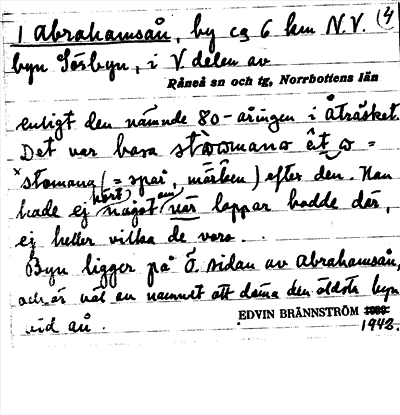 1 Abrahamsån, by ca 6 km N.V. (4
byn Sörbyn, i V delen av
Råneå sn och tg, Norrbottens län
enligt den nämnde 80-åringen i Åträsket.
Det var bara
stomana (= spår, märken) efter den. Han
hade ej hört något om när lappar bodde där,
ej heller vilka de voro.
Byn ligger på Ö. sidan av Abrahamsån,
och är väl av namnet att döma den äldsta byn
vid ån.
EDVIN BRÄNNSTRÖM
1942.